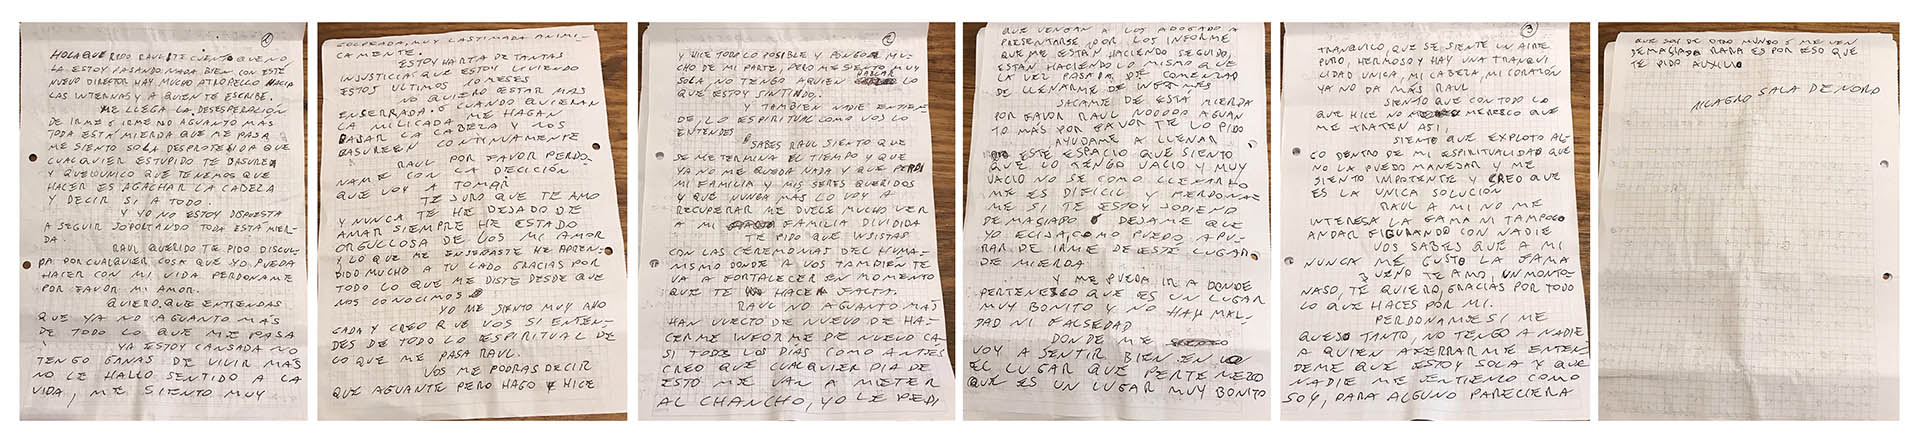 HOLA QUERIDO RAUL TE CUENTO QUE NO
LA ESTOY PASANDO NADA BIEN CON ESTE
NUEVO DIRETOR HAY MUCHO ATROPELLO HACIA
LAS INTERNAS Y A QUIEN TE ESCRIBE.
ME LLEGA LA DESESPERACIÓN
DE IRME O IRME NO AGUANTO MÁS
TODA ESTA MIERDA QUE ME PASA
ME SIENTO SOLA DESPROTEGIDA QUE
CUALQUIER ESTUPIDO TE BASUREA
Y QUE LO UNICO QUE TENEMOS QUE
HACER ES AGACHAR LA CABEZA
Y DECIR SI A TODO.
Y YO NO ESTOY DISPUESTA
A SEGUIR SOPORTANDO TODA ESTA MIER-
DA.
RAUL QUERIDO TE PIDO DISCUL
PA POR CUALQUIER COSA QUE YO PUEDA
HACER CON MI VIDA PERDONAME
POR FAVOR MI AMOR.
QUIERO QUE ENTIENDAS
QUE YA NO AGUANTO MÁS
DE TODO LO QUE ME PASA
YA ESTOY CANSADA NO
TENGO GANAS DE VIVIR MÁS
NO LE HALLO SENTIDO A LA
VIDA, ME SIENTO MUY
GOLPEADA, MUY LASTIMADA ANIMI-
CAMENTE.
ESTOY HARTA DE TANTAS
INJUSTICIAS QUE ESTOY VIVIENDO
ESTOS ULTIMOS 10 MESES
NO QUIERO ESTAR MAS
ENSERRADA. O CUANDO QUIERAN
LA MILICADA ME HAGAN
BAJAR LA CABEZA Y NOS
BASUREEN CONTINUAMENTE
RAUL POR FAVOR PERDO-
NAME CON LA DECICIÓN
QUE VOY A TOMAR
TE JURO QUE TE AMO
Y NUNCA TE HE DEJADO DE
AMAR SIEMPRE HE ESTADO
ORGULLOSA DE VOS MI AMOR
Y LO QUE ME ENSEÑASTE HE APREN-
DIDO MUCHO A TU LADO GRACIAS POR
TODO LO QUE ME DISTE DESDE QUE
NOS CONOCIMOS
YO ME SIENTO MUY AHO
GADA Y CREO QUE VOS SI ENTEN-
DES DE TODO LO ESPIRITUAL DE
LO QUE ME PASA RAUL.
VOS ME PODRAS DECIR
QUE AGUANTE PERO HAGO Y HICE
Y HICE TODO LO POSIBLE Y PONGO MU-
CHO DE MI PARTE, PERO ME SIENTO MUY
HABLAR
SOLA, NO TENGO A QUIEN LO
QUE ESTOY SINTINDO.
Y TAMBIEN NADIE ENTIEN
DE, LO ESPIRITUAL COMO VOS LO
ENTENDES
SABES RAUL SIENTO QUE
SE ME TERMINA EL TIEMPO Y QUE
YA NO ME QUEDA NADA Y QUE PERDI
MI FAMILIA Y MIS SERES QUERIDOS
Y QUE NUNCA MAS LO VOY A
RECUPERAR ME DUELE MUCHO VER
A MI FAMILIA DIVIDIDA
TE PIDO QUE INSISTAS
CON LAS CEREMONIAS DEL CHUMA-
NISMO DONDE A VOS TAMBIÉN TE
VA A FORTALECER EN MOMENTO
QUE TE HACEN FALTA.
RAUL NO AGUANTO MÁS
HAN VUELTO DE NUEVO DE HA-
CERME INFORME DE NUEVO CA-
SI TODOS LOS DIAS COMO ANTES
CREO QUE CUALQUIER DIA DE
ESTO ME VAN A METER
AL CHANCHO, YO LE PEDI
QUE VENGAN A LOS ABOGADO A
PRESENTARSE POR LOS INFORME
QUE ME ESTAN HACIENDO SEGUIDO,
ESTAN HACIENDO LO MISMO QUE
LA VEZ PASADA, DE COMENZAR
DE LLENARME DE INFORMES
SACAME DE ESTA MIERDA
POR FAVOR RAUL NOOOOO AGUAN
TO MÁS POR FAVOR TE LO PIDO
AYUDAME A LLENAR
ESTE ESPACIO QUE SIENTO
QUE LO TENGO VACIO Y MUY
VACIO NO SE COMO LLENARLO
ME ES DIFICIL Y PERDONA-
ME SI TE ESTOY JODIENDO
DEMACIADO DEJAME QUE
YO ELIJA, COMO PUEDO APU-
RAR DE IRME DE ESTE LUGAR
DE MIERDA.
Y ME PUEDA IR A DONDE
PERTENESCO QUE ES UN LUGAR
MUY BONITO Y NO HAY MAL-
DAD NI FALSEDAD
DONDE ME
VOY A SENTIR BIEN EN
EL LUGAR QUE PERTENEZCO
QUE ES UN LUGAR MUY BONITO
3
TRANQUILO, QUE SE SIENTE UN AIRE
PURO, HERMOSO Y HAY UNA TRANQUI
LIDAD UNICA, MI CABEZA, MI CORAZÓN
YA NO DA MÁS RAUL
SIENTO QUE CON TODO LO
QUE HICE NO MERESCO QUE
ME TRATEN ASI,
SIENTO QUE EXPLOTO AL-
GO DENTRO DE MI ESPIRITUALIDAD QUE
NO LA PUEDO MANEJAR Y ME
SIENTO IMPOTENTE Y CREO QUE
ES LA UNICA SOLUCIÓN
RAUL A MI NO ME
INTERESA LA FAMA NI TAMPOCO
ANDAR FIGURANDO CON NADIE
VOS SABES QUE A MI
NUNCA ME GUSTO LA FAMA
BUENO TE AMO, UN MONTO-
NASO, TE QUIERO, GRACIAS POR TODO
LO QUE HACES POR MI.
PERDONAME SI ME
QUEJO TANTO, NO TENGO A NADIE
A QUIEN AFERRARME ENTEN
DEME QUE ESTOY SOLA Y QUE
NADIE ME ENTIENDE COMO
SOY, PARA ALGUNO PARECIERA
QUE SOY DE OTRO MUNDO O ME VEN
DEMACIADA RARA ES POR ESO QUE
TE PIDO AUXILIO
MILAGRO SALA DE NORO